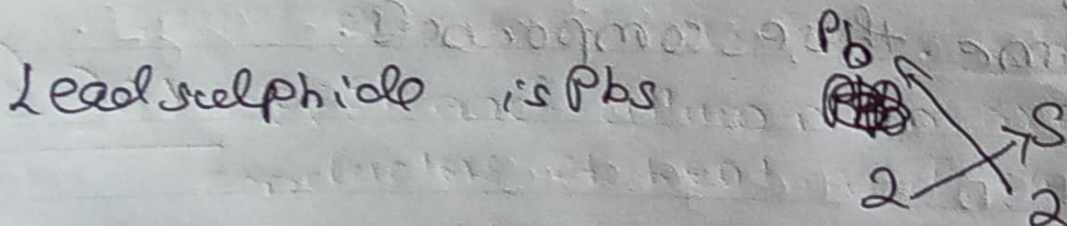 Pb
Lead sulphide is Pbs
S
2 2